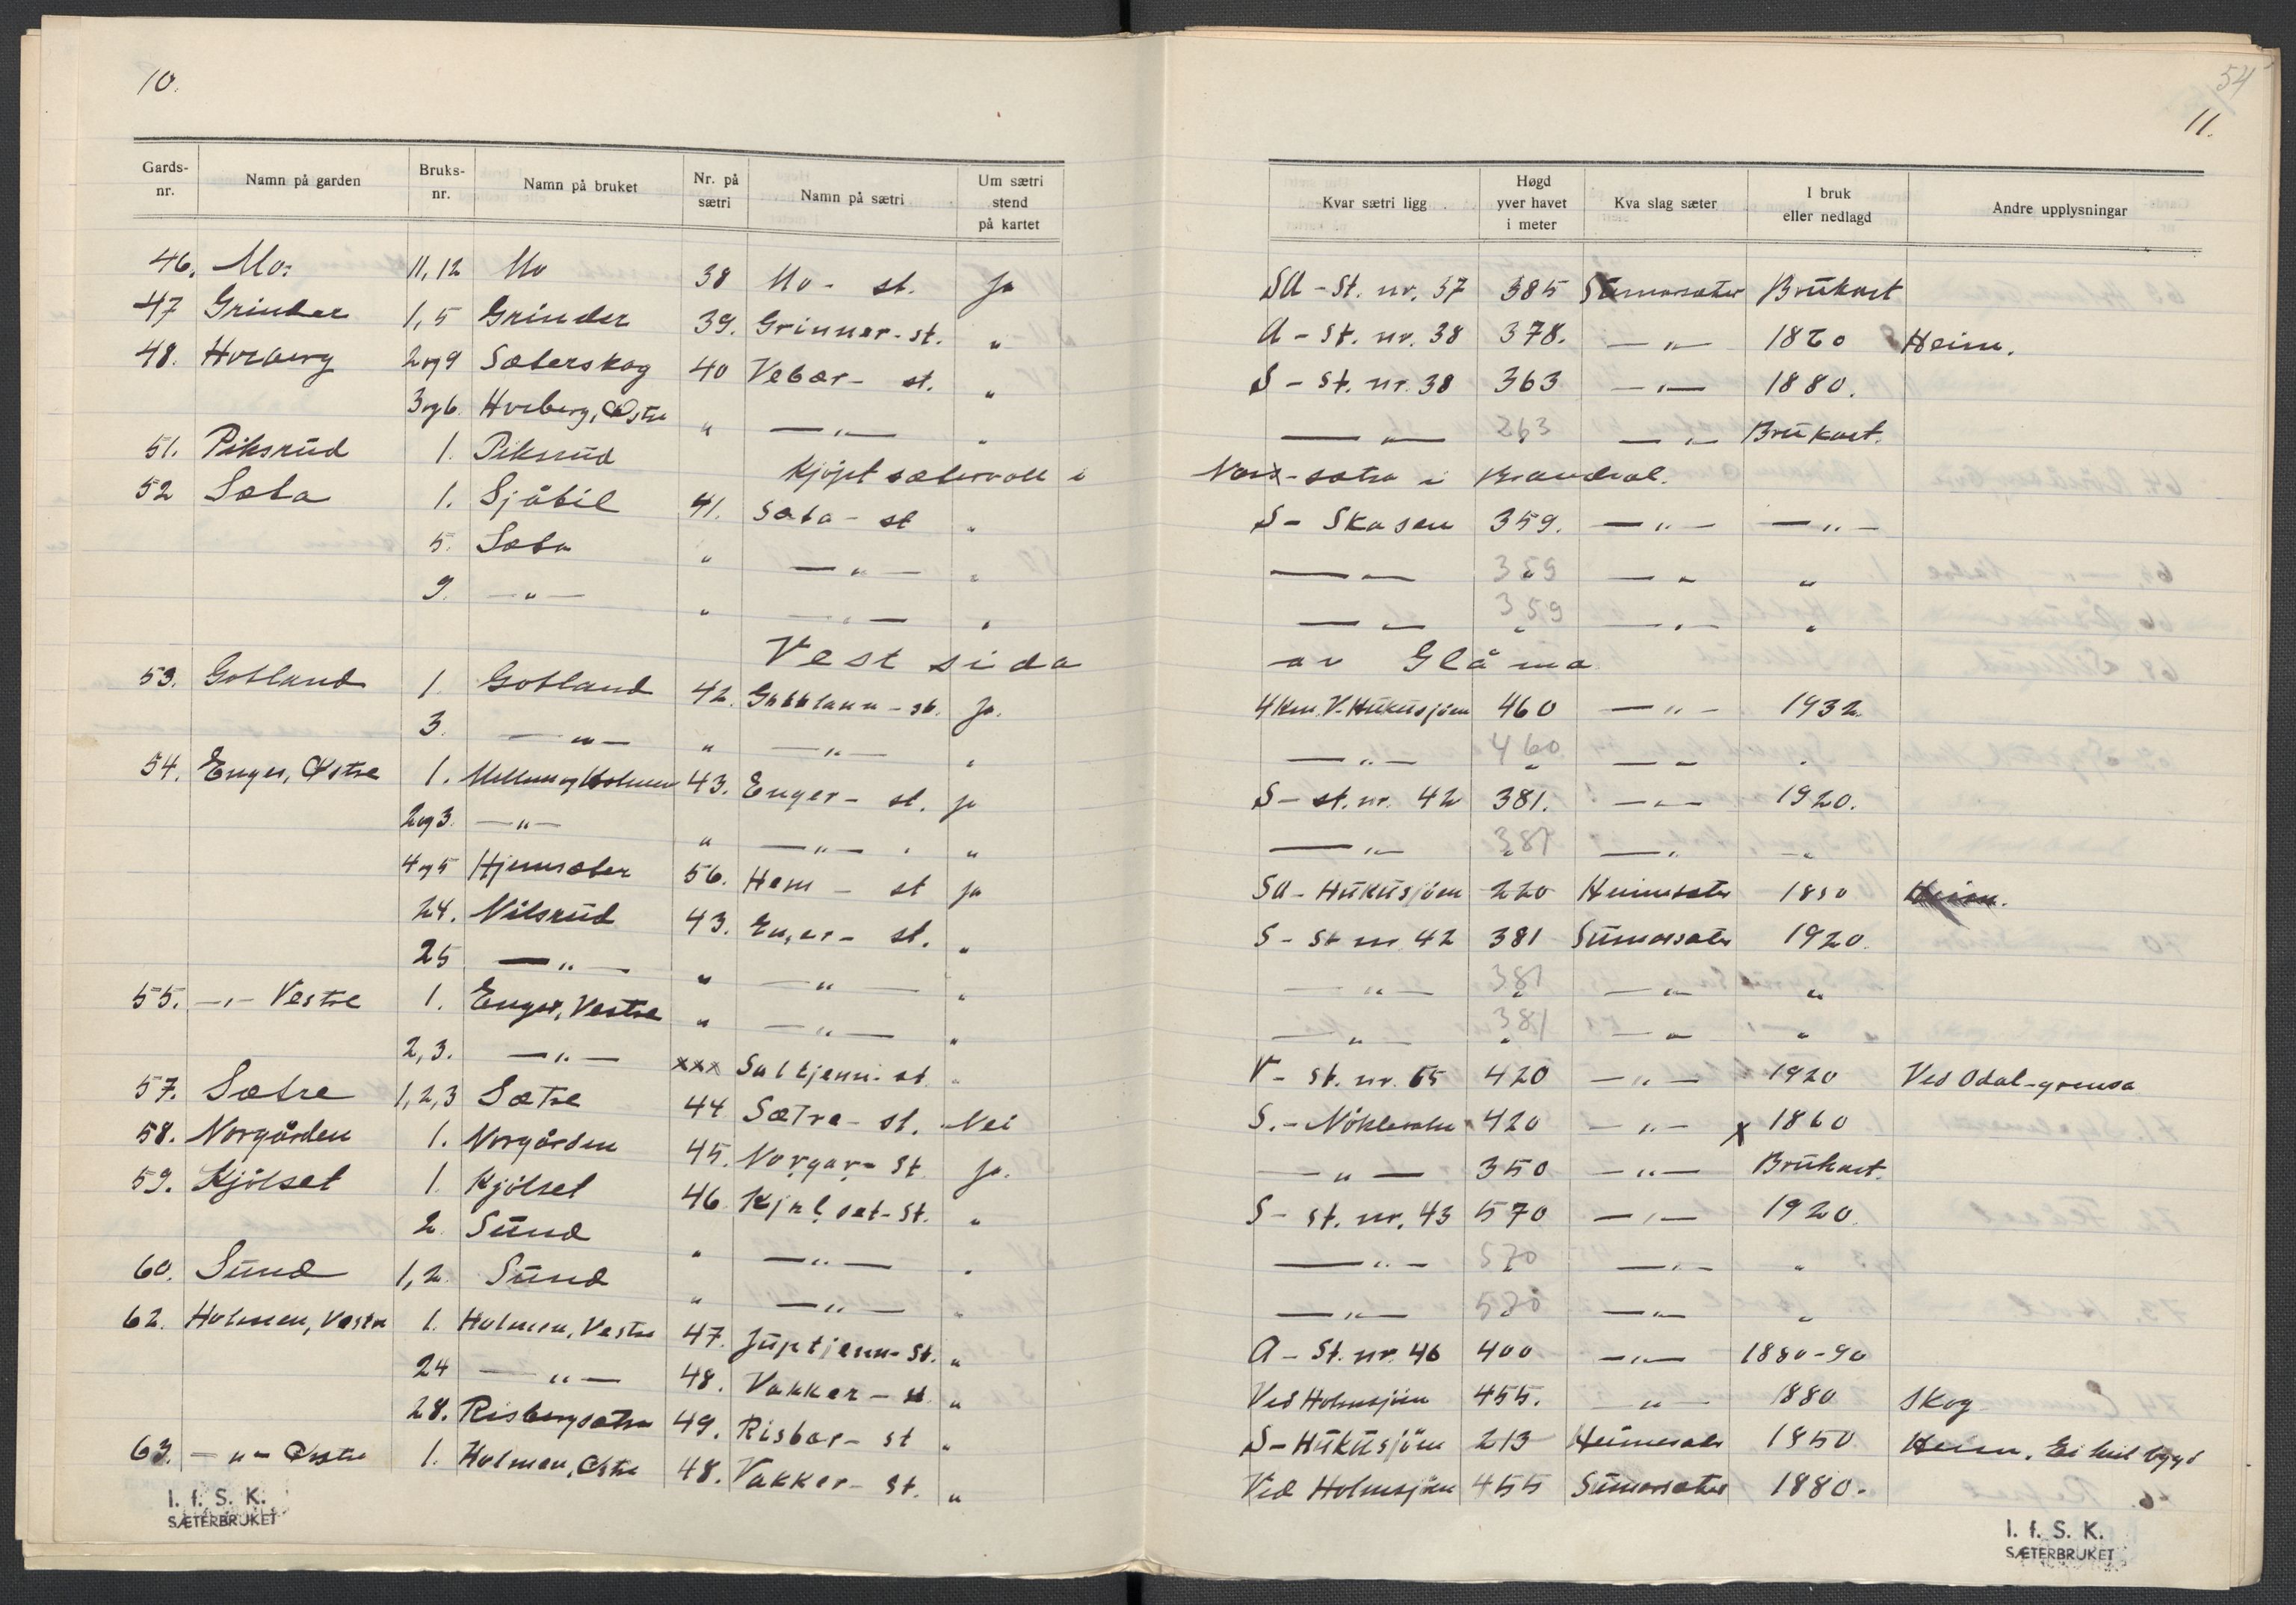 10.
Gards-nr. | Namn på garden | Bruks-nr. | Namn på bruket | Nr. på sætri | Namn på sætri | Um sætri stend på kartet
46. Mo: 11,12 Mo 38 Mo- st. Ja
47 Grinder 1,5 Grinder 39. Grinner-st. "
48. Hvrberg 2og9 Sæterskog 40 Vebær- st. "
3og6. Hvrberg, Østre " —"— "
51. Piksrud 1. Piksrud Kjöpt sætervoll i
52 Sæta 1. Sjåtil 41. Sæta- st "
5. Sæta " —"— "
9. —"— " —"— "
Vest sida
53. Gotland 1. Gotland 42. Gottlann-st. Ja.
3. —"— " —"— "
54. Enger, Østre 1. Mellem og Holmen 43. Enger- st. ja
2og3. —"— " —"— "
4og5 Hjemsæter 56. Hem- st ja
24. Nilsrud 43. Enger- st. "
25 —"— " —"— "
55. —"— Vestre 1. Enger, Vestre " —"— "
2,3. —"— xxx Saltjenn-st. "
57. Sætre 1,2,3 Sætre 44 Sætre- st. Nei
58. Norgården 1. Norgården 45. Norgar- st Ja.
59. Kjölset 1. Kjölset 46. Kjølset-st. "
2. Sund " —"— "
60. Sund 1,2. Sund " —"— "
62. Holmen, Vestre 1. Holmen, Vestre 47. Juptjenn-st. "
24 —"— 48. Vakker- st. "
28. Risbergsætra 49. Risbær- st "
63. —"— Østre 1. Holmen, Østre 48. Vakker- st. "
I. f. S. K.
SÆTERBRUKET
54
11.
Kvar sætri ligg | Høgd yver havet i meter | Kva slag sæter | I bruk eller nedlagd | Andre upplysningar
SA - St. nr. 37 385 Sumarsæter Brukast
A - St. nr. 38 378. —"— 1820 Heim.
S - St. nr. 38 363 —"— 1880.
—"— 263 —"— Brukast.
Nor-sætra i Brandval.
S - Skasen 359. —"— —"—
—"— 359 —"— "
—"— 359 —"— "
av Glåma
4 km. V-Hukusjöen 460 —"— 1932.
—"— 460 —"— "
S - st. nr. 42 381. —"— 1920.
—"— 381 —"— —"
SA - Hukusjöen 220 Heimesæter 1850 Heim.
S - St nr 42 381 Sumarsæter 1920.
—"— 381 —"— "
—"— 381 —"— "
V - st. nr. 65 420 —"— 1920 Ved Odal-grensa
S. - 420 —"— x 1860
—"— 350 —"— Brukast.
S - st. nr. 43 570 —"— 1920.
—"— 570 —"— "
—"— 570 —"— "
A - St. nr. 46 400 —"— 1880-90
Ved Holmsjöen 455. —"— 1880 Skog
S - Hukusjöen 213 Heimesæter 1850 Heim. Ei heil bygd
Ved Holmsjöen 455 Sumarsæter 1880.
I. f. S. K.
SÆTERBRUKET